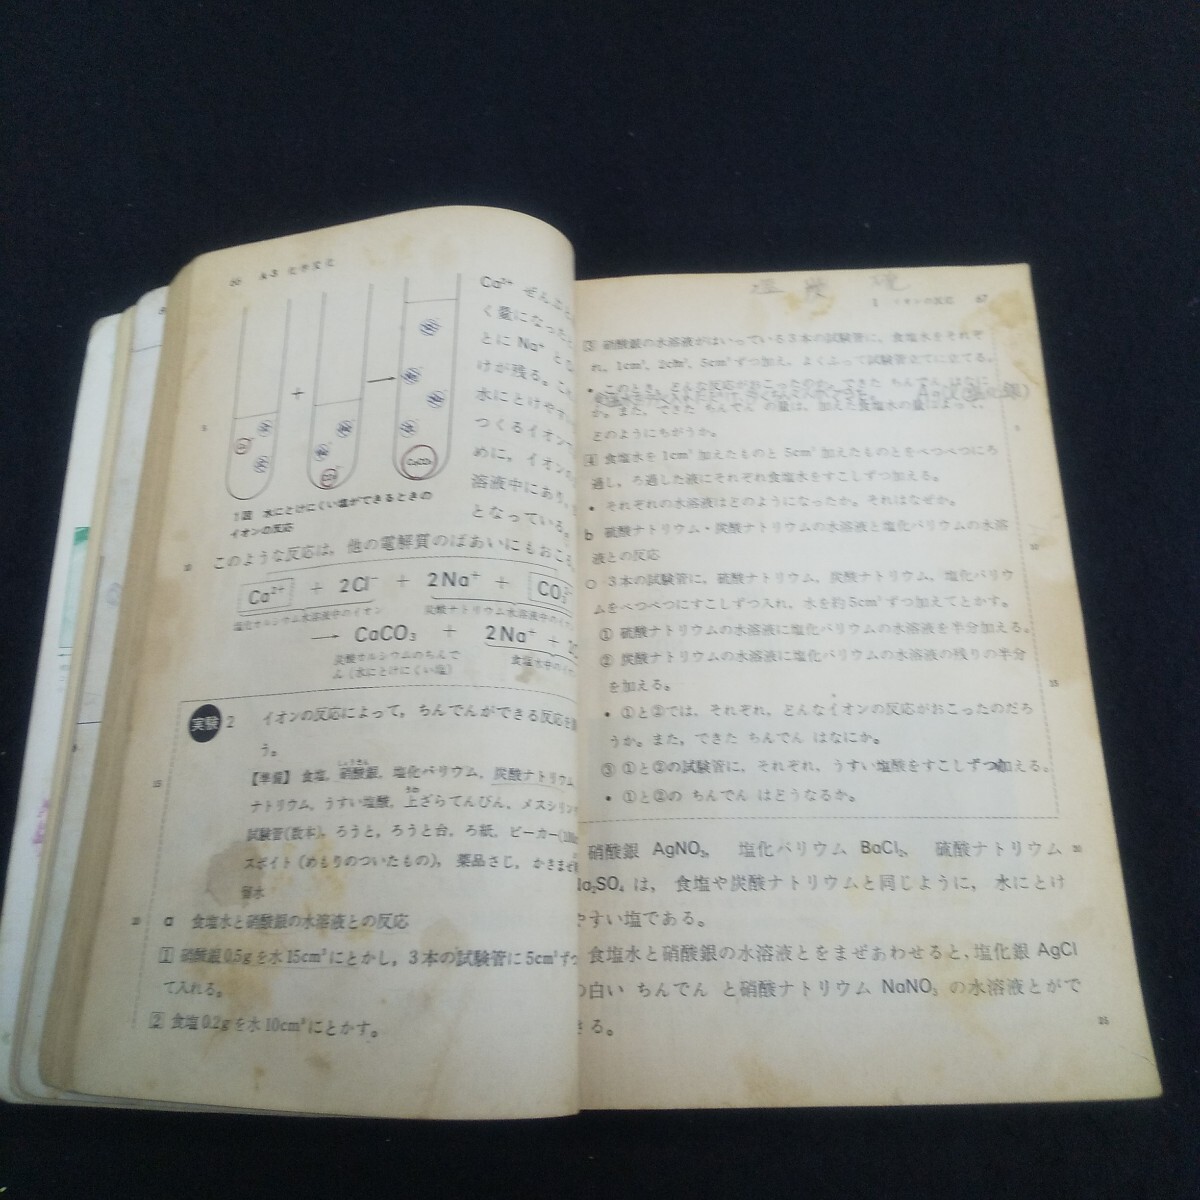 66 A·3 化学変化
Ca²⁺ ぜんぶと
く量になった
とに Na⁺ と
けが残る。こ
水にとけやす
つくるイオン
めに，イオン
溶液中にあり，
となっている。
+
CaCO₃
5
1図 水にとけにくい塩ができるときの
イオンの反応
10
このような反応は，他の電解質のばあいにもおこる
Ca²⁺ + 2Cl⁻ + 2Na⁺ + CO₃²⁻
塩化カルシウム水溶液中のイオン 炭酸ナトリウム水溶液中のイオ
→ CaCO₃ + 2Na⁺ +
炭酸カルシウムのちんで
ん（水にとけにくい塩） 食塩水中のイ
実験 2 イオンの反応によって，ちんでんができる反応を
う。
15
【準備】 食塩，硝酸銀，塩化バリウム，炭酸ナトリウム，
ナトリウム，うすい塩酸，上ざらてんびん，メスシリン
試験管(数本)，ろうと，ろうと台，ろ紙，ビーカー
スポイト(めもりのついたもの)， 薬品さじ，かきまぜ
留水
20
a 食塩水と硝酸銀の水溶液との反応
1 硝酸銀0.5gを水15cm³にとかし，3本の試験管に5cm³ずつ
て入れる。
2 食塩0.2gを水10cm³にとかす。
1 イオンの反応 67
3 硝酸銀の水溶液がはいっている3本の試験管に，食塩水をそれぞ
れ，1cm³，2cm³，5cm³ずつ加え，よくふって試験管立てに立てる。
• このとき，どんな反応がおこったのか。できた ちんでん はなに
か。また，できた ちんでん の量は，加えた食塩水の量によって，
AgCl(塩化銀)
どのようにちがうか。
5
4 食塩水を1cm³加えたものと5cm³加えたものとをべつべつにろ
過し，ろ過した液にそれぞれ食塩水をすこしずつ加える。
• それぞれの水溶液はどのようになったか。それはなぜか。
b 硫酸ナトリウム・炭酸ナトリウムの水溶液と塩化バリウムの水溶
10
液との反応
○ 3本の試験管に，硫酸ナトリウム，炭酸ナトリウム，塩化バリウ
ムをべつべつにすこしずつ入れ，水を約5cm³ずつ加えてとかす。
① 硫酸ナトリウムの水溶液に塩化バリウムの水溶液を半分加える。
② 炭酸ナトリウムの水溶液に塩化バリウムの水溶液の残りの半分
を加える。
15
• ①と②では，それぞれ，どんなイオンの反応がおこったのだろ
うか。また，できた ちんでん はなにか。
③ ①と②の試験管に，それぞれ，うすい塩酸をすこしずつ加える。
• ①と②の ちんでん はどうなるか。
硝酸銀 AgNO₃， 塩化バリウム BaCl₂， 硫酸ナトリウム
20
Na₂SO₄ は，食塩や炭酸ナトリウムと同じように，水にとけ
やすい塩である。
食塩水と硝酸銀の水溶液とをまぜあわせると，塩化銀 AgCl
の白い ちんでん と硝酸ナトリウム NaNO₃ の水溶液とがで
きる。
25